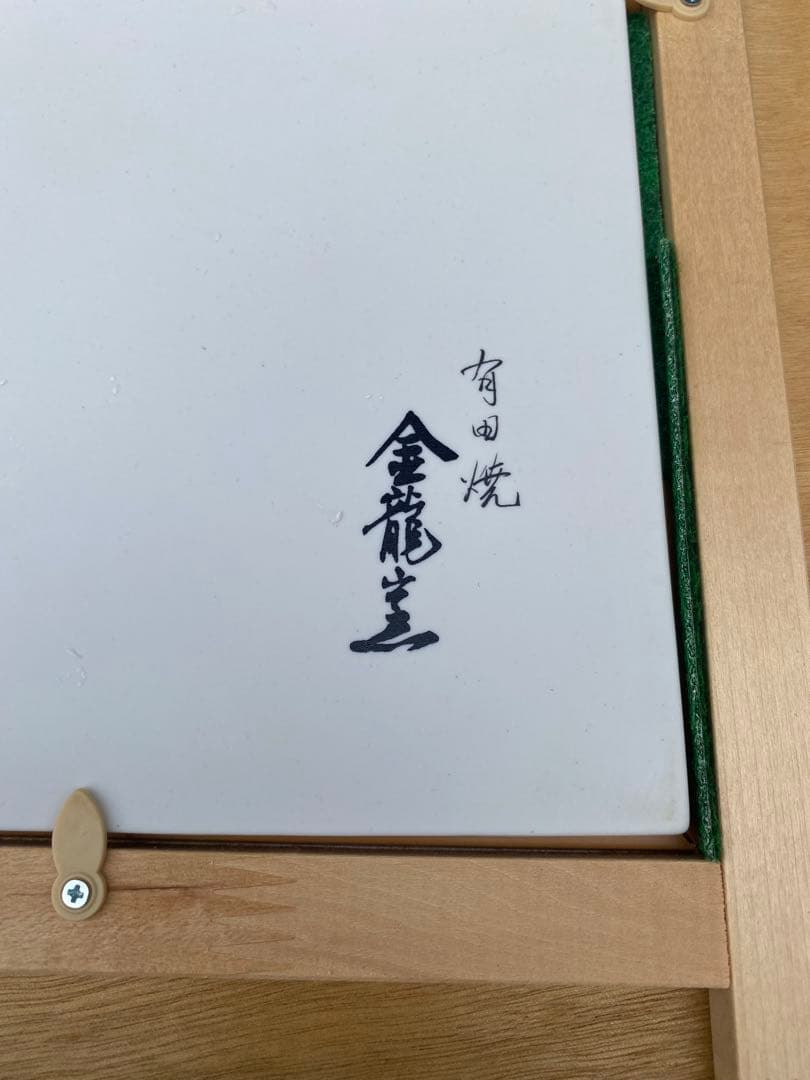 有田焼
金龍窯